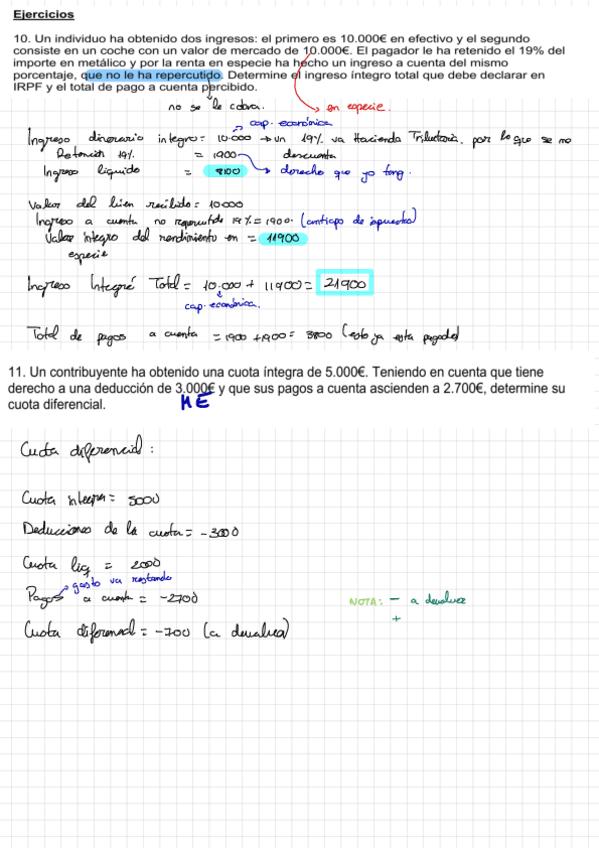 Ejercicios
10. Un individuo ha obtenido dos ingresos: el primero es 10.000€ en efectivo y el segundo
consiste en un coche con un valor de mercado de 10.000€. El pagador le ha retenido el 19% del
importe en metálico y por la renta en especie ha hecho un ingreso a cuenta del mismo
porcentaje, que no le ha repercutido. Determine el ingreso íntegro total que debe declarar en
IRPF y el total de pago a cuenta percibido.
no se le cobra.
en especie.
cap. económica
Ingreso dinerario integro = 10.000 → un 19% va Hacienda Tributaria, por lo que se me
Retención 19% = 1900 descuenta
Ingreso líquido = 8100 derecho que yo tengo.
Valor del bien recibido = 10.000
Ingreso a cuenta no repercutido 19% = 1900. (anticipo de impuestos)
Valor íntegro del rendimiento en = 11900
especie
Ingreso Integré Total = 10.000 + 11900 = 21900
cap. económica.
Total de pagos a cuenta = 1900 + 1900 = 3800 (esto ya esta pagado)
11. Un contribuyente ha obtenido una cuota íntegra de 5.000€. Teniendo en cuenta que tiene
derecho a una deducción de 3.000€ y que sus pagos a cuenta ascienden a 2.700€, determine su
cuota diferencial.
ME
Cuota diferencial :
Cuota integra = 5000
Deducciones de la cuota = -3000
Cuota liq = 2000
gasto va restando
Pagos a cuenta = -2700
NOTA: - a devolver
+
Cuota diferencial = -700 (a devolver)